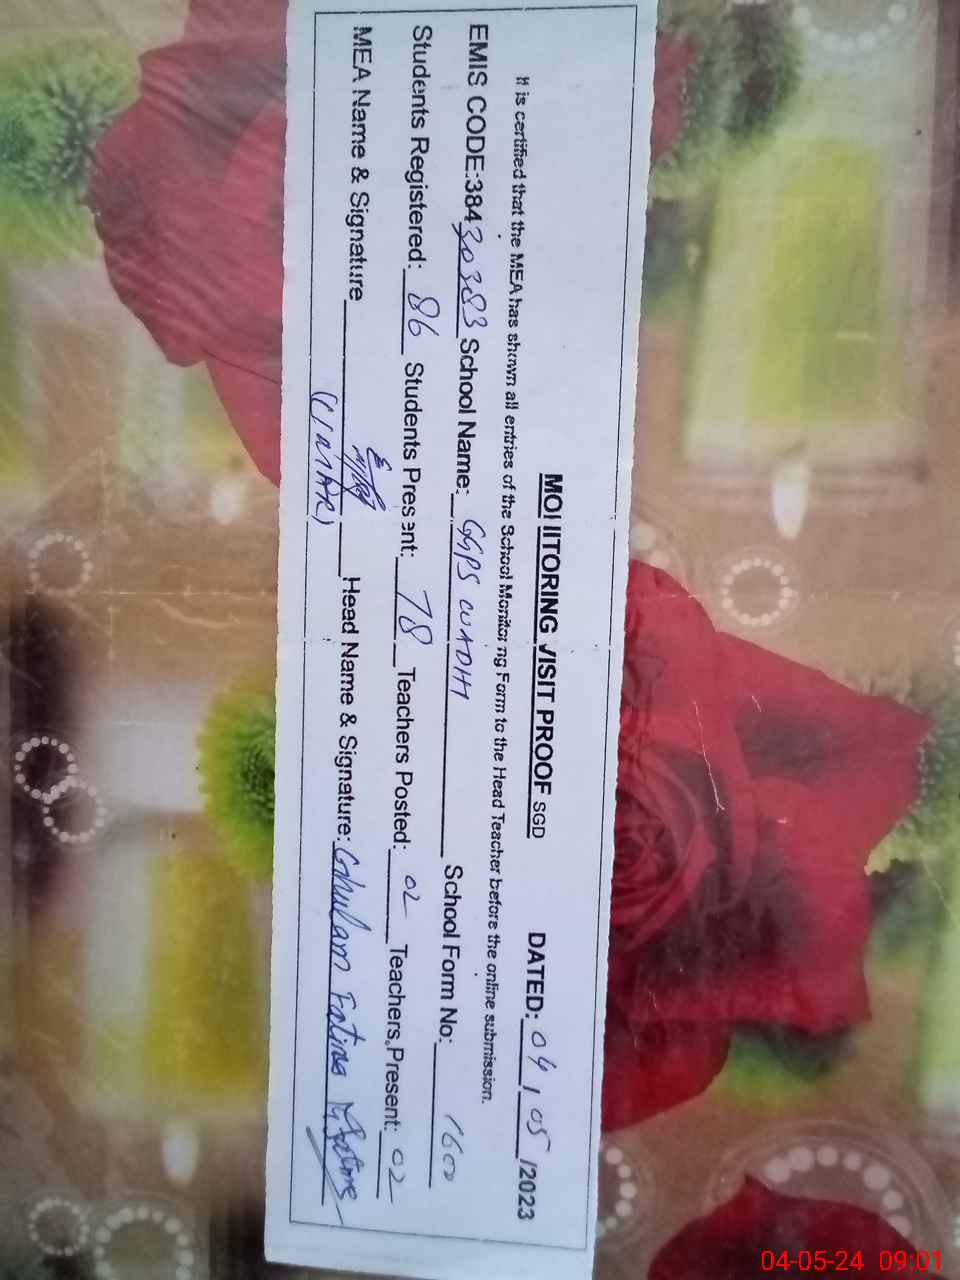 MONITORING VISIT PROOF SGD DATED: 04 / 05 /2023
It is certified that the MEA has shown all entries of the School Monitoring Form to the Head Teacher before the online submission.
EMIS CODE:38430383 School Name: GGPS WADHI School Form No: 1600
Students Registered: 86 Students Present: 78 Teachers Posted: 02 Teachers Present: 02
MEA Name & Signature Head Name & Signature: Ghulam Fatima
04-05-24 09:01